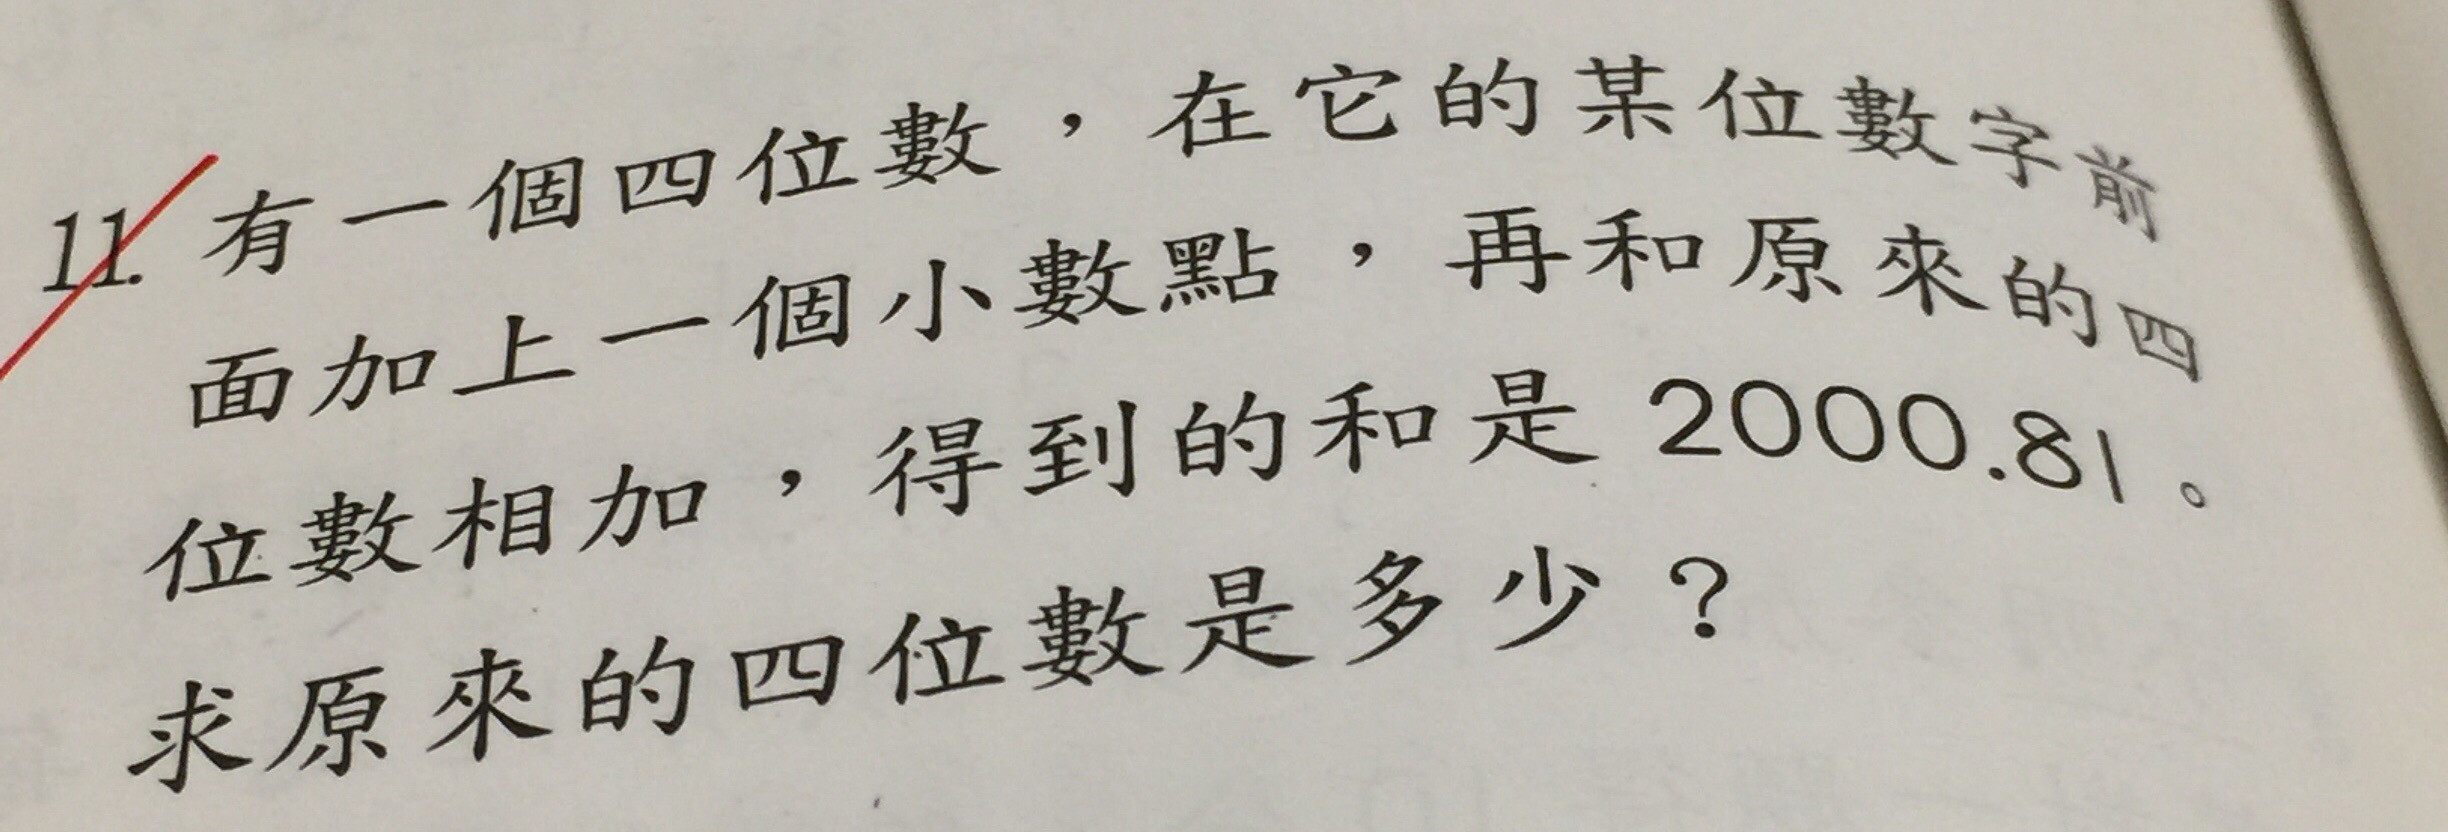 11. 有一個四位數，在它的某位數字前
面加上一個小數點，再和原來的四
位數相加，得到的和是 2000.81。
求原來的四位數是多少？